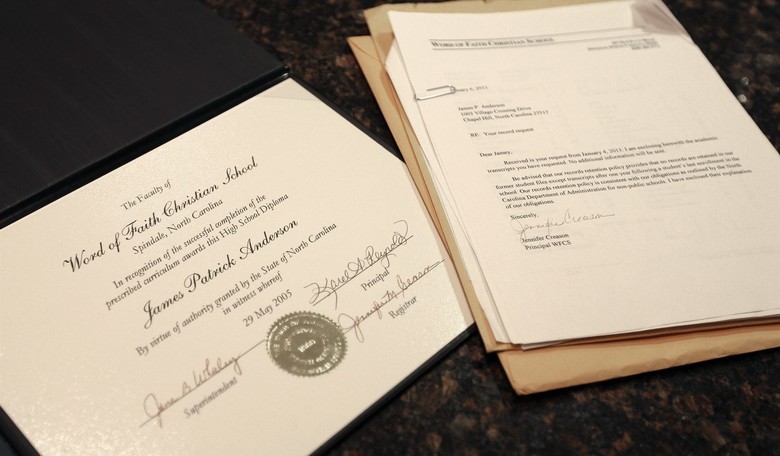 The Faculty of
Word of Faith Christian School
Spindale, North Carolina
In recognition of the successful completion of the
prescribed curriculum awards this High School Diploma
James Patrick Anderson
By virtue of authority granted by the State of North Carolina
in witness whereof
29 May 2005
Karel A. Reynolds
Principal
Jennifer M Creason
Registrar
Jane B Whaley
Superintendent
WORD OF FAITH CHRISTIAN SCHOOL
6, 2013
James P. Anderson
1001 Village Crossing Drive
Chapel Hill, North Carolina 27517
RE: Your record request
Dear Jamey,
Received is your request from January 4, 2013. I am enclosing herewith the academic
transcripts you have requested. No additional information will be sent.
Be advised that our records retention policy provides that no records are retained in our
former student files except transcripts after one year following a student's last enrollment in the
school. Our records retention policy is consistent with our obligations as outlined by the North
Carolina Department of Administration for non-public schools. I have enclosed their explanation
of our obligations.
Sincerely,
Jennifer Creason
Jennifer Creason
Principal WFCS